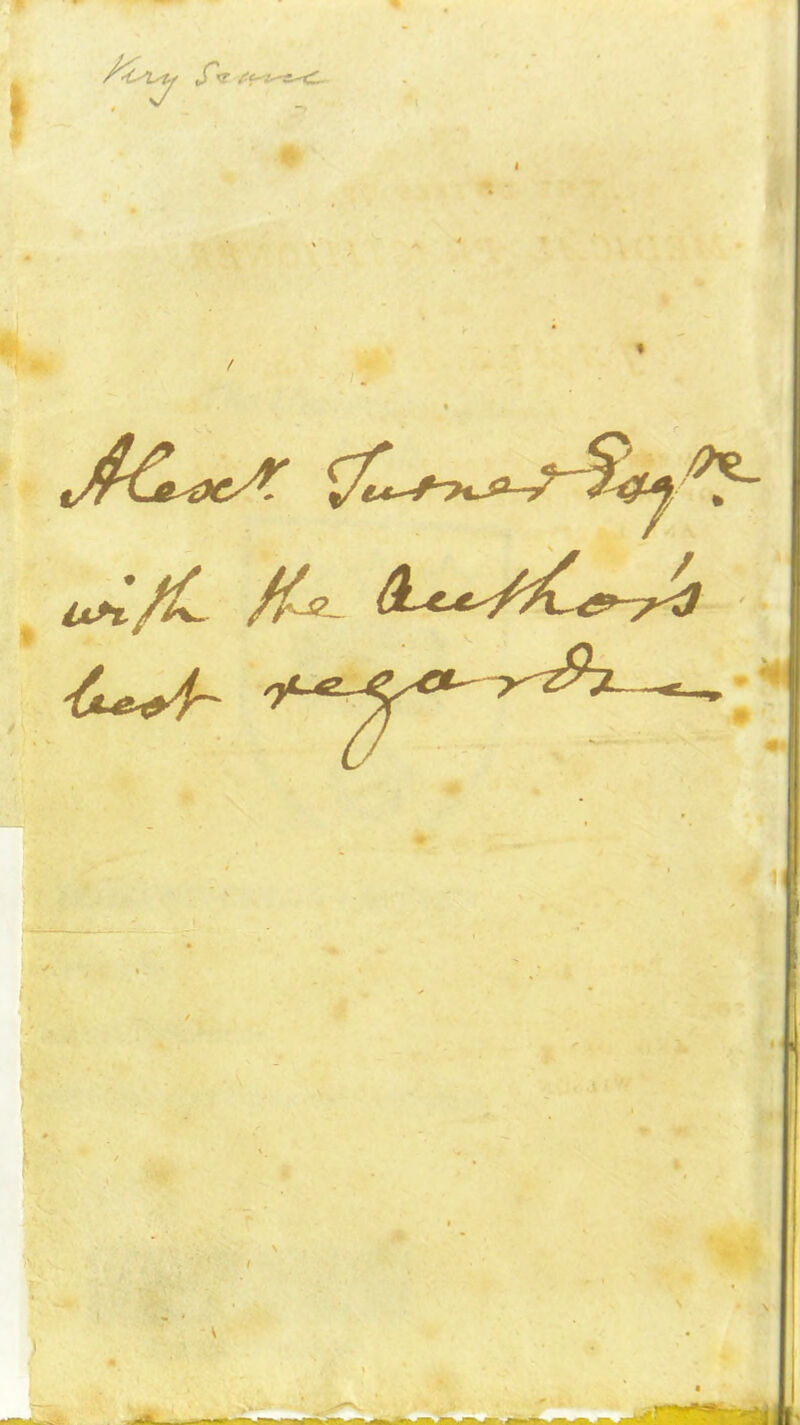 Very Scarce
Alexr. Turner Esqre.
with the Author's
best regards